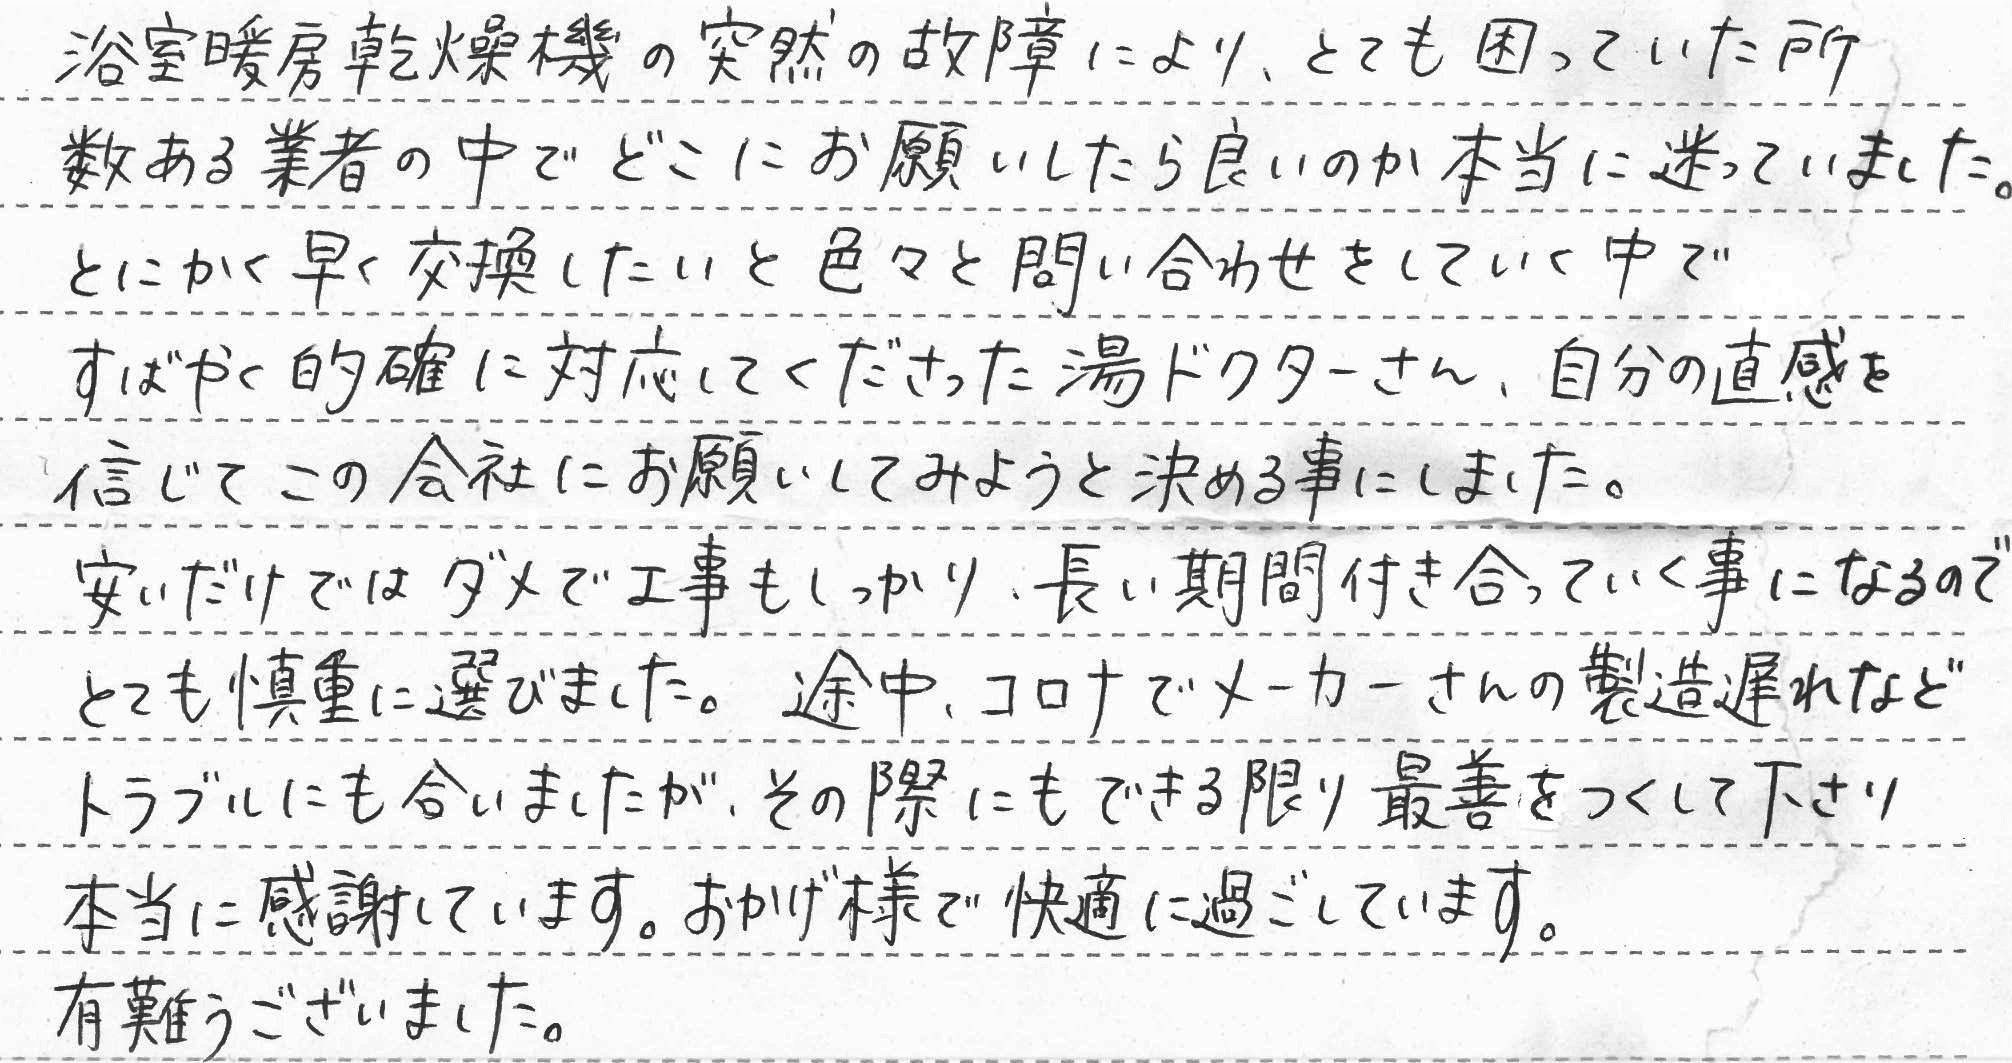 浴室暖房乾燥機の突然の故障により、とても困っていた所
数ある業者の中でどこにお願いしたら良いのか本当に迷っていました。
とにかく早く交換したいと色々と問い合わせをしていく中で
すばやく的確に対応してくださった湯ドクターさん、自分の直感を
信じてこの会社にお願いしてみようと決める事にしました。
安いだけではダメで工事もしっかり、長い期間付き合っていく事になるので
とても慎重に選びました。途中、コロナでメーカーさんの製造遅れなど
トラブルにも合いましたが、その際にもできる限り最善をつくして下さり
本当に感謝しています。おかげ様で快適に過ごしています。
有難うございました。